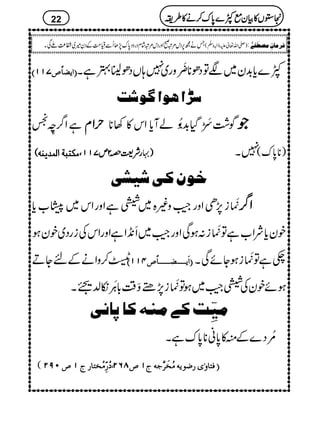 22
نجاستوں کا بیان مع کپڑے پاک کرنے کا طریقہ
فرمانِ مصطفےٰ
کپڑے یا بدن میں لگے تو دھونا ضَروری نہیں ہاں دھو لینا بہتر ہے۔ (ایضاً ص ۱۱۷)
سڑا ہوا گوشت
جو گوشت سَڑ گیا بدبُو لے آیا اس کا کھانا حرام ہے اگرچِہ نَجَس
(ناپاک) نہیں۔ (بہارِ شریعت حصہ ۲ ص ۱۱۷، مکتبۃ المدینہ)
خون کی شیشی
اگر نَماز پڑھی اور جیب وغیرہ میں شیشی ہے اور اس میں پیشاب یا
خون یا شراب ہے تو نَماز نہ ہو گی اور جیب میں انڈا ہے اور اس کی زردی خون ہو
چکی ہے تو نَماز ہو جائے گی۔ (اَیضاً ص ۱۱۴) ٹیسٹ کروانے کے لئے لے جاتے
ہوئے خون کی شیشی جیب میں ہو تو نَماز پڑھتے وَقت باہَر نکال دیجئے۔
میِّت کے منہ کا پانی
مُردے کے منہ کا پانی ناپاک ہے۔
(فتاوٰی رضویہ مُخَرَّجہ ج ۱ ص ۲۶۸، دُرِّمُختار ج ۱ ص ۲۹۰)